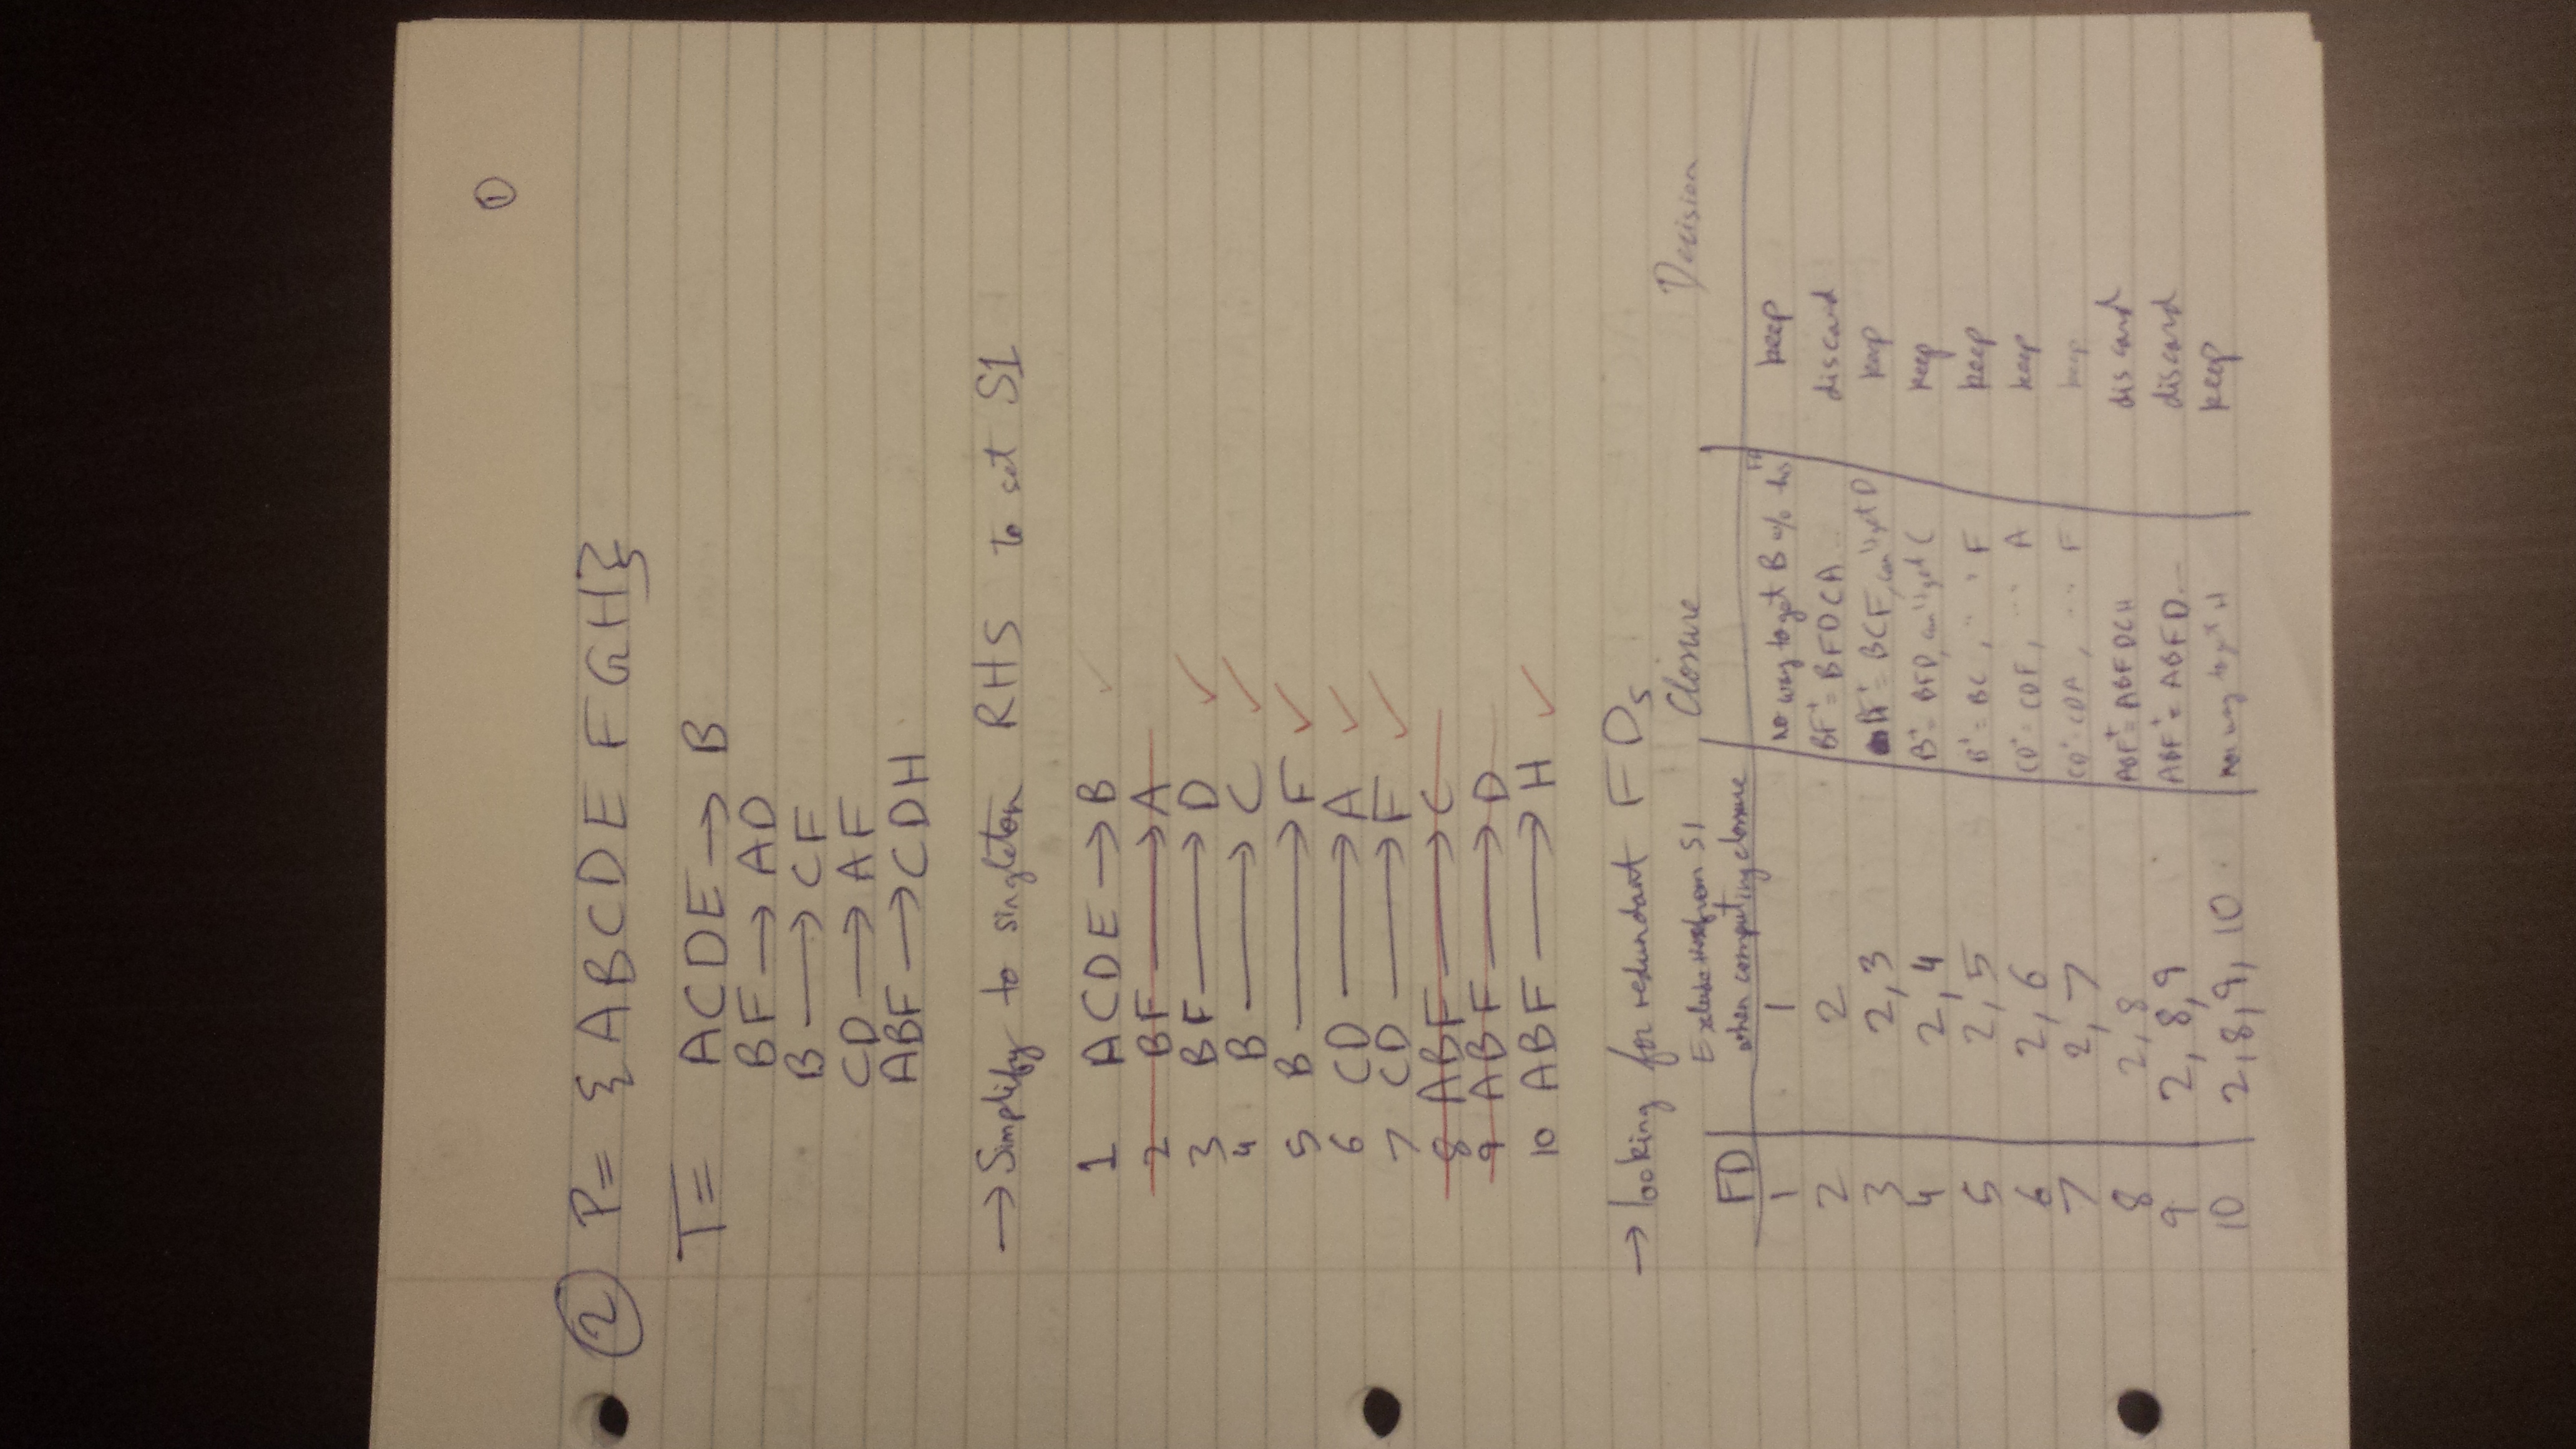 ①
② P= {ABCDEFGH}
T= ACDE → B
BF → AD
B → CF
CD → AF
ABF → CDH
→ Simplify to singleton RHS to set S1
1 ACDE → B ✓
2 BF → A
3 BF → D ✓
4 B → C ✓
5 B → F ✓
6 CD → A ✓
7 CD → F ✓
8 ABF → C
9 ABF → D
10 ABF → H ✓
→ looking for redundant FDs
FD Exclude these from S1 when computing closure Closure Decision
1 1 no way to get B w/o this FD keep
2 2 BF⁺= BFDCA discard
3 2,3 BF⁺= BCF, can't get D keep
4 2,4 B⁺= BFD, can't get C keep
5 2,5 B⁺= BC, " " F keep
6 2,6 CD⁺= CDF, " " A keep
7 2,7 CD⁺= CDA, " " F keep
8 2,8 ABF⁺= ABFDCH discard
9 2,8,9 ABF⁺= ABFD... discard
10 2,8,9,10 no way to get H keep